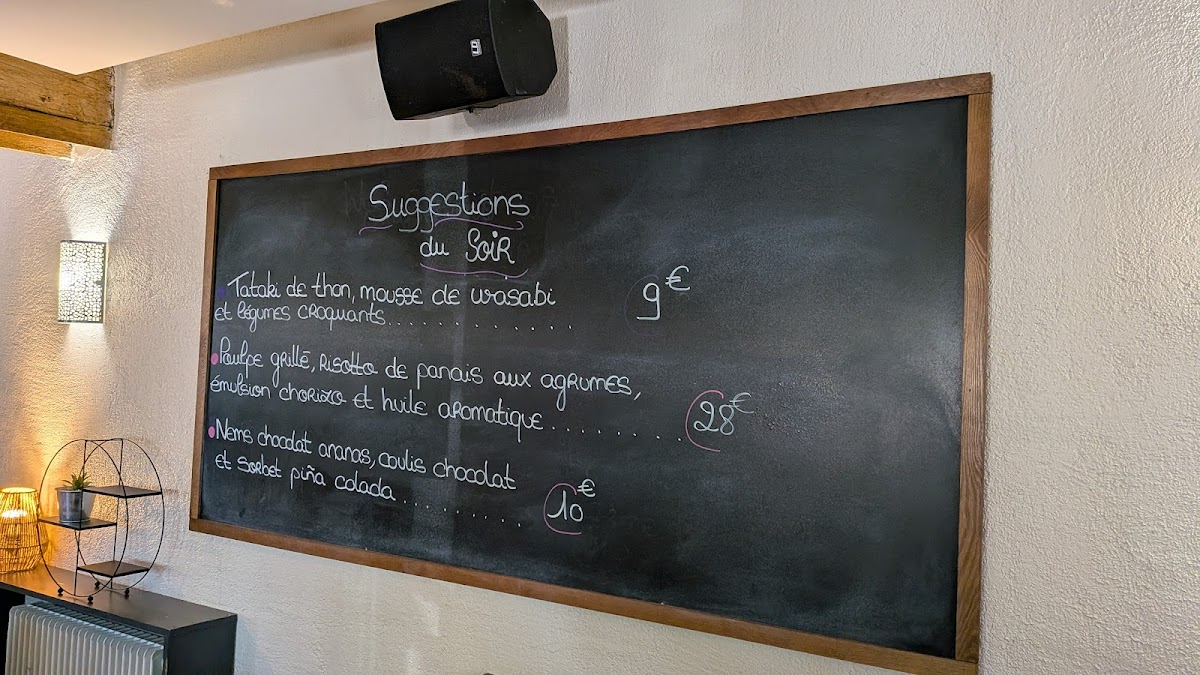 Suggestions
du Soir
Tataki de thon, mousse de wasabi
et légumes croquants.............. 9€
Poulpe grillé, risotto de panais aux agrumes,
émulsion chorizo et huile aromatique......... 28€
Nems chocolat ananas, coulis chocolat
et sorbet piña colada.......... 10€